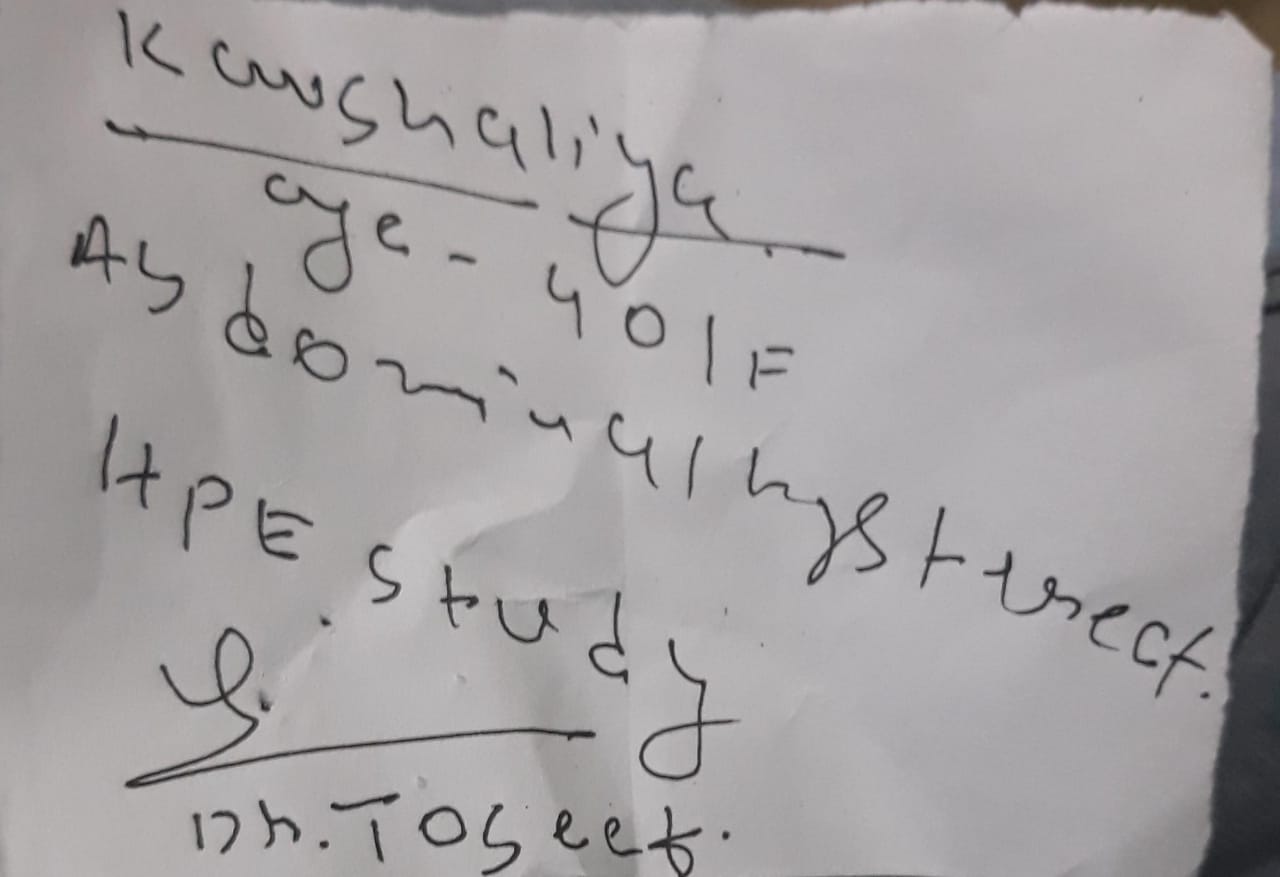 Kaushaliya
age - 40/F
Abdominal hysterect.
HPE study
Dr. Toseef.